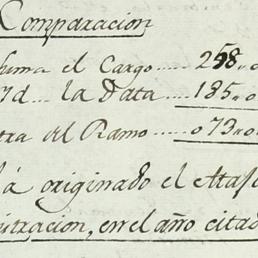 Comparacion
suma el Cargo ..... 258..0
7d... la Data ..... 185..0
tra al Ramo ..... 073..0
á originado el Atas
istracion, en el año citad